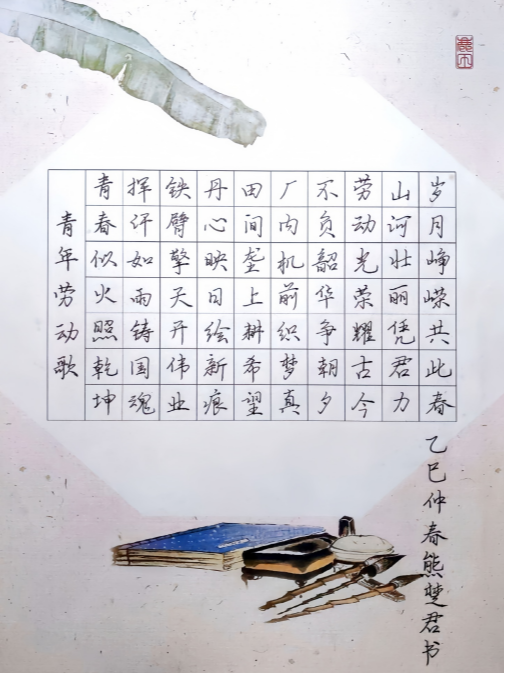 青年劳动歌
青春似火照乾坤
挥汗如雨铸国魂
铁臂擎天开伟业
丹心映日绘新痕
田间垄上耕希望
厂内机前织梦真
不负韶华争朝夕
劳动光荣耀古今
山河壮丽凭君力
岁月峥嵘共此春
乙巳仲春熊楚君书